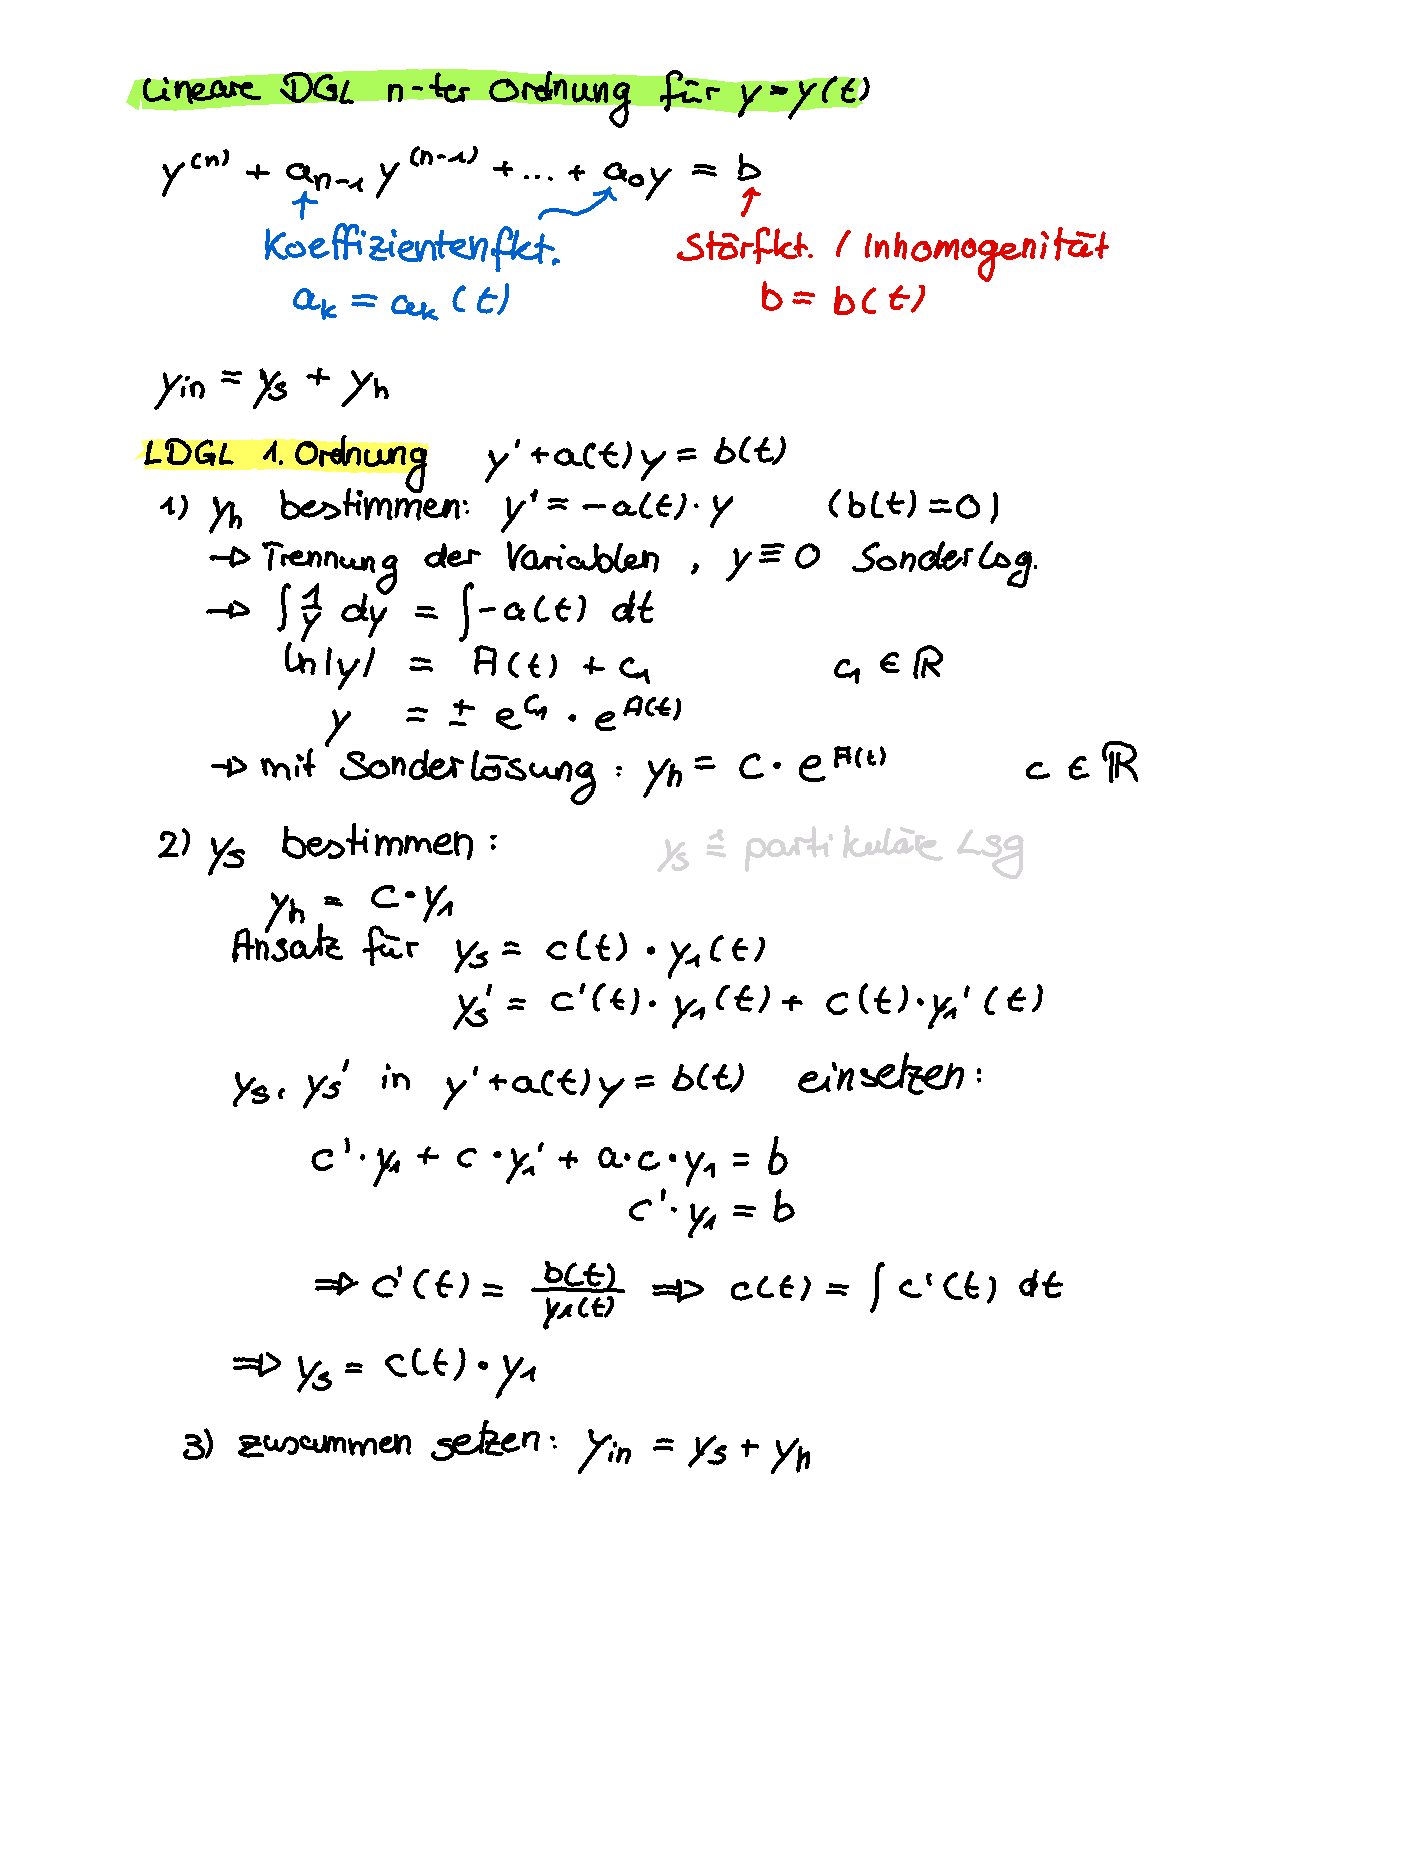 Lineare DGL n-ter Ordnung für y = y(t)
y⁽ⁿ⁾ + aₙ₋₁ y⁽ⁿ⁻¹⁾ + ... + a₀y = b
Koeffizientenfkt. Störfkt. / Inhomogenität
aₖ = aₖ(t) b = b(t)
y_in = y_s + y_h
LDGL 1. Ordnung y' + a(t)y = b(t)
1) y_h bestimmen: y' = -a(t)·y (b(t)=0)
→ Trennung der Variablen, y ≡ 0 Sonderlsg.
→ ∫ 1/y dy = ∫ -a(t) dt
ln|y| = A(t) + c₁ c₁ ∈ ℝ
y = ± e^c₁ · e^A(t)
→ mit Sonderlösung: y_h = c · e^A(t) c ∈ ℝ
2) y_s bestimmen: y_s ≙ partikuläre Lsg
y_h = c·y₁
Ansatz für y_s = c(t) · y₁(t)
y_s' = c'(t)·y₁(t) + c(t)·y₁'(t)
y_s, y_s' in y' + a(t)y = b(t) einsetzen:
c'·y₁ + c·y₁' + a·c·y₁ = b
c'·y₁ = b
⇒ c'(t) = b(t)/y₁(t) ⇒ c(t) = ∫ c'(t) dt
⇒ y_s = c(t)·y₁
3) zusammen setzen: y_in = y_s + y_h